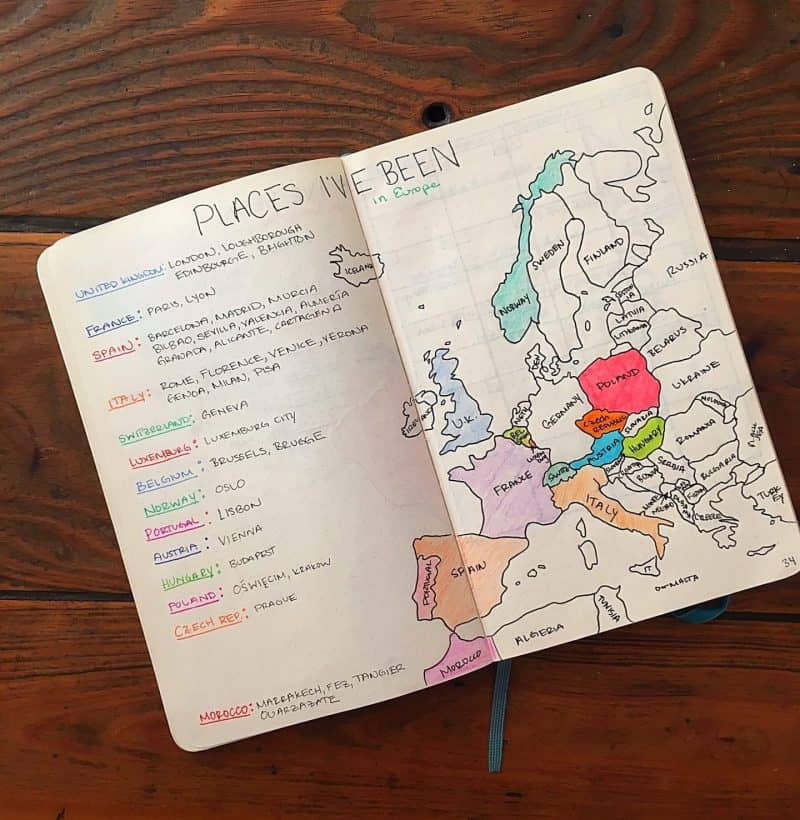 PLACES I'VE BEEN
in Europe
UNITED KINGDOM: LONDON, LOUGHBOROUGH
EDINBOURGE, BRIGHTON
FRANCE: PARIS, LYON
SPAIN: BARCELONA, MADRID, MURCIA
BILBAO, SEVILLA, VALENCIA, ALMERÍA
GRANADA, ALICANTE, CARTAGENA
ITALY: ROME, FLORENCE, VENICE, VERONA
GENOA, MILAN, PISA
SWITZERLAND: GENEVA
LUXENBURG: LUXEMBURG CITY
BELGIUM: BRUSSELS, BRUGGE
NORWAY: OSLO
PORTUGAL: LISBON
AUSTRIA: VIENNA
HUNGARY: BUDAPEST
POLAND: OŚWIĘCIM, KRAKOW
CZECH REP.: PRAGUE
MOROCCO: MARRAKECH, FEZ, TANGIER
OUARZAZATE
ICELAND
NORWAY
SWEDEN
FINLAND
RUSSIA
ESTONIA
LATVIA
LITHUANIA
BELARUS
DEN
IRELAND
U.K.
NETH
BEL
GERMANY
POLAND
UKRAINE
CZECH
REPUBLIC
SLOVAKIA
MOLDOVA
AUSTRIA
HUNGARY
ROMANIA
FRANCE
SWITZ
ITALY
CROATIA
BOSNIA
SERBIA
BULGARIA
MONTE
NEGRO
GREECE
TURK
EY
SPAIN
PORTUGAL
IT.
MALTA
MOROCCO
ALGERIA
TUNISIA
34